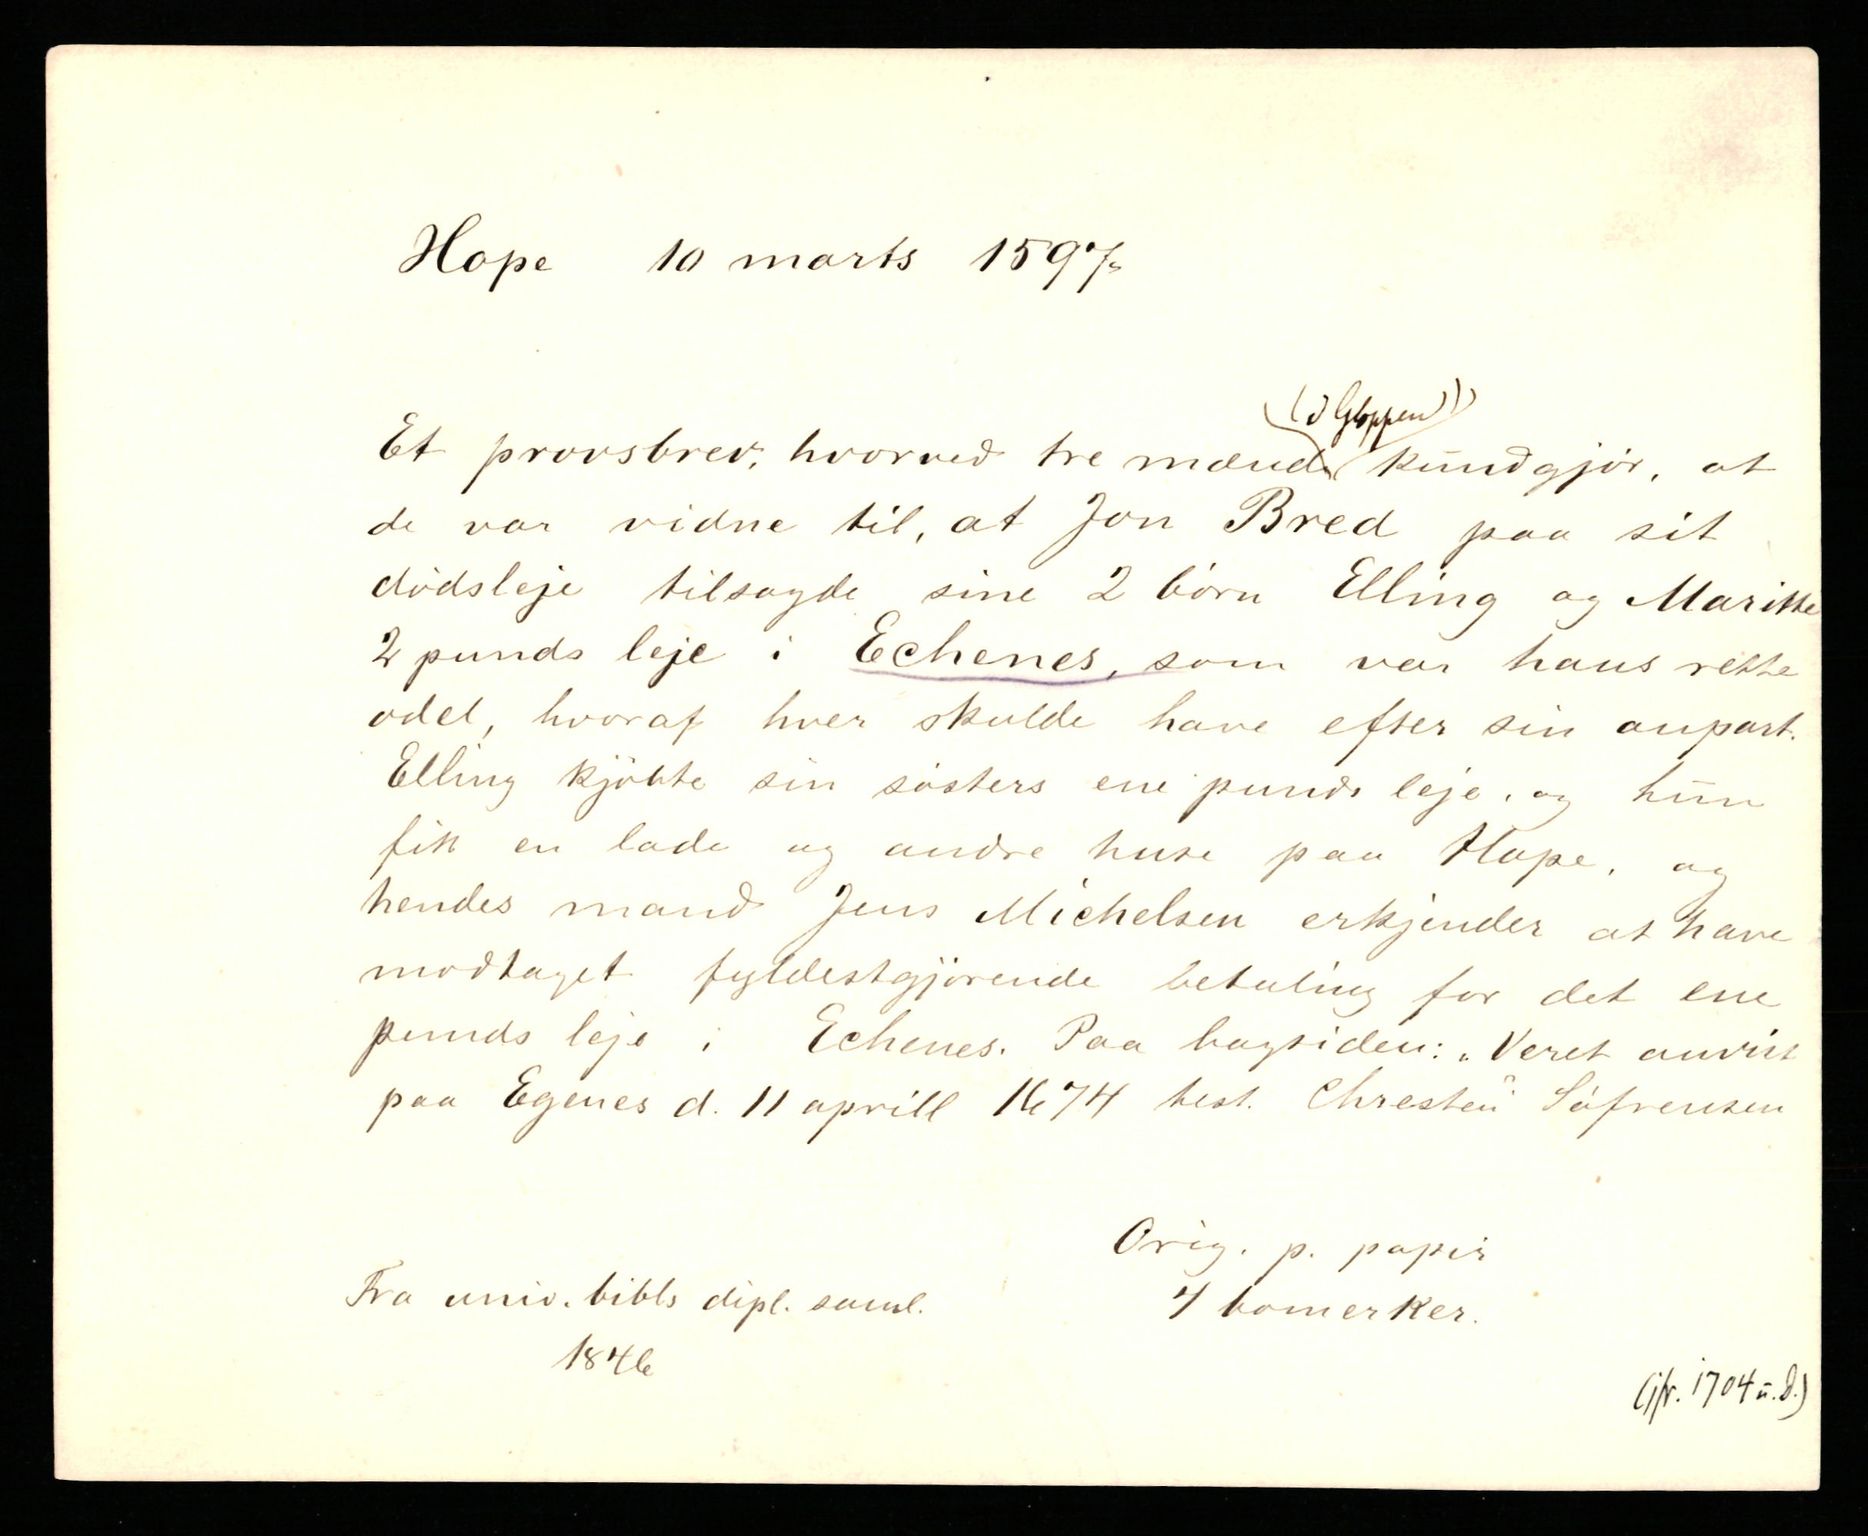 Hope 10 marts 1597
((i Gloppen))
Et provsbrev, hvorved tre mænd kundgjör, at
de var vidne til, at Jon Bred paa sit
dödsleje tilsagde sine 2 börn Elling og Maritte
2 punds leje i Echenes, som var hans rette
odel, hvoraf hver skulde have efter sin anpart.
Elling kjöbte sin sösters ene punds leje, og hun
fik en lade og andre huse paa Hope, og
hendes mand Jens Michelsen erkjender at have
modtaget fyldestgjörende betaling for det ene
punds leje i Echenes. Paa bagsiden: „Veret anvist
paa Egenes d. 11 aprill 1674 test. Chresten Söfrensen
Orig. p. papir
Fra univ. bibls dipl. saml. 4 bomerker.
1846
(jfr. 1704 u. d.)